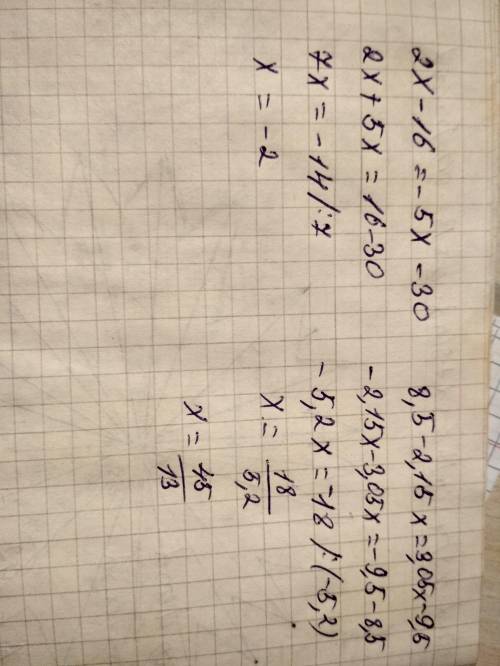 2x - 16 = - 5x - 30
2x + 5x = 16 - 30
7x = - 14 / : 7
x = - 2
8,5 - 2,15x = 3,05x - 9,5
- 2,15x - 3,05x = - 9,5 - 8,5
- 5,2x = - 18 / : (-5,2)
x = 18/5,2
x = 45/13